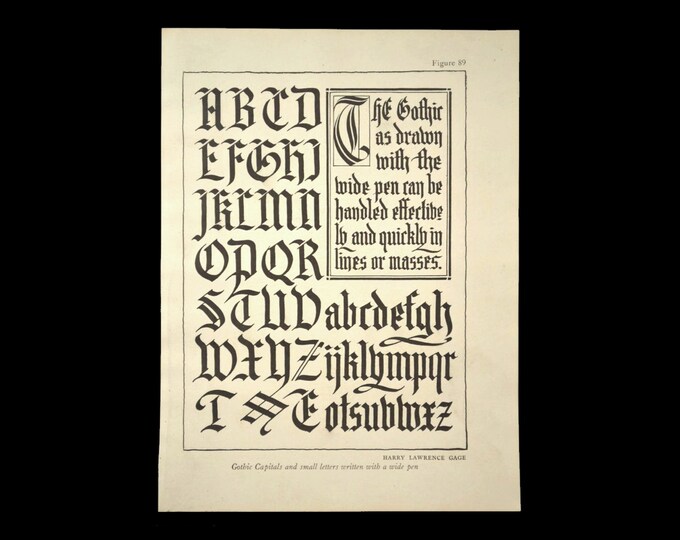 Figure 89
ABCD
EFGHI
JKLMN
OPQR
The Gothic
as drawn
with the
wide pen can be
handled effective-
ly and quickly in
lines or masses.
STUVabcdefgh
WXYZijklympqr
T & E otsuvwxz
HARRY LAWRENCE GAGE
Gothic Capitals and small letters written with a wide pen